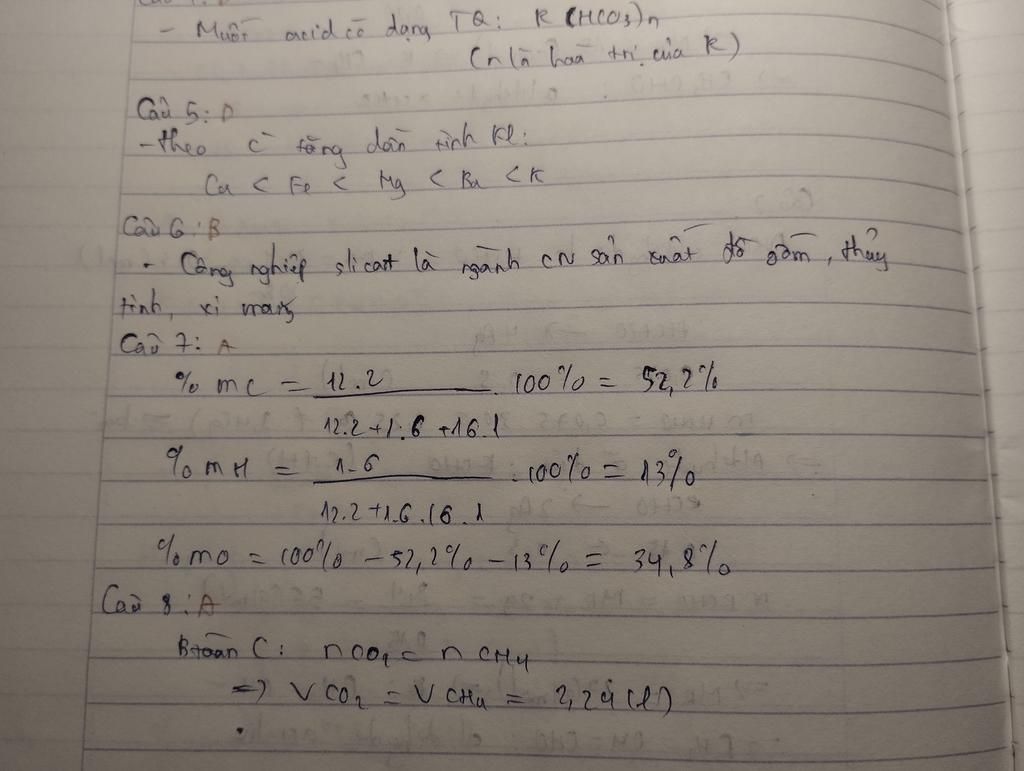 - Muối acid có dạng TQ: R(HCO3)n
(n là hoá trị của R)
Câu 5: D
- theo c² tăng dần tính Kl:
Cu < Fe < Mg < Ba < K
Câu 6: B
- Công nghiệp slicat là ngành CN sản xuất đồ gốm, thủy
tinh, xi măng
Câu 7: A
% mC = 12.2 / 12.2+1.6+16.1 . 100% = 52,2%
% mH = 1.6 / 12.2+1.6.16.1 . 100% = 13%
% mO = 100% - 52,2% - 13% = 34,8%
Câu 8: A
Btoàn C: nCO2 = nCH4
=> VCO2 = VCH4 = 2,24 (l)